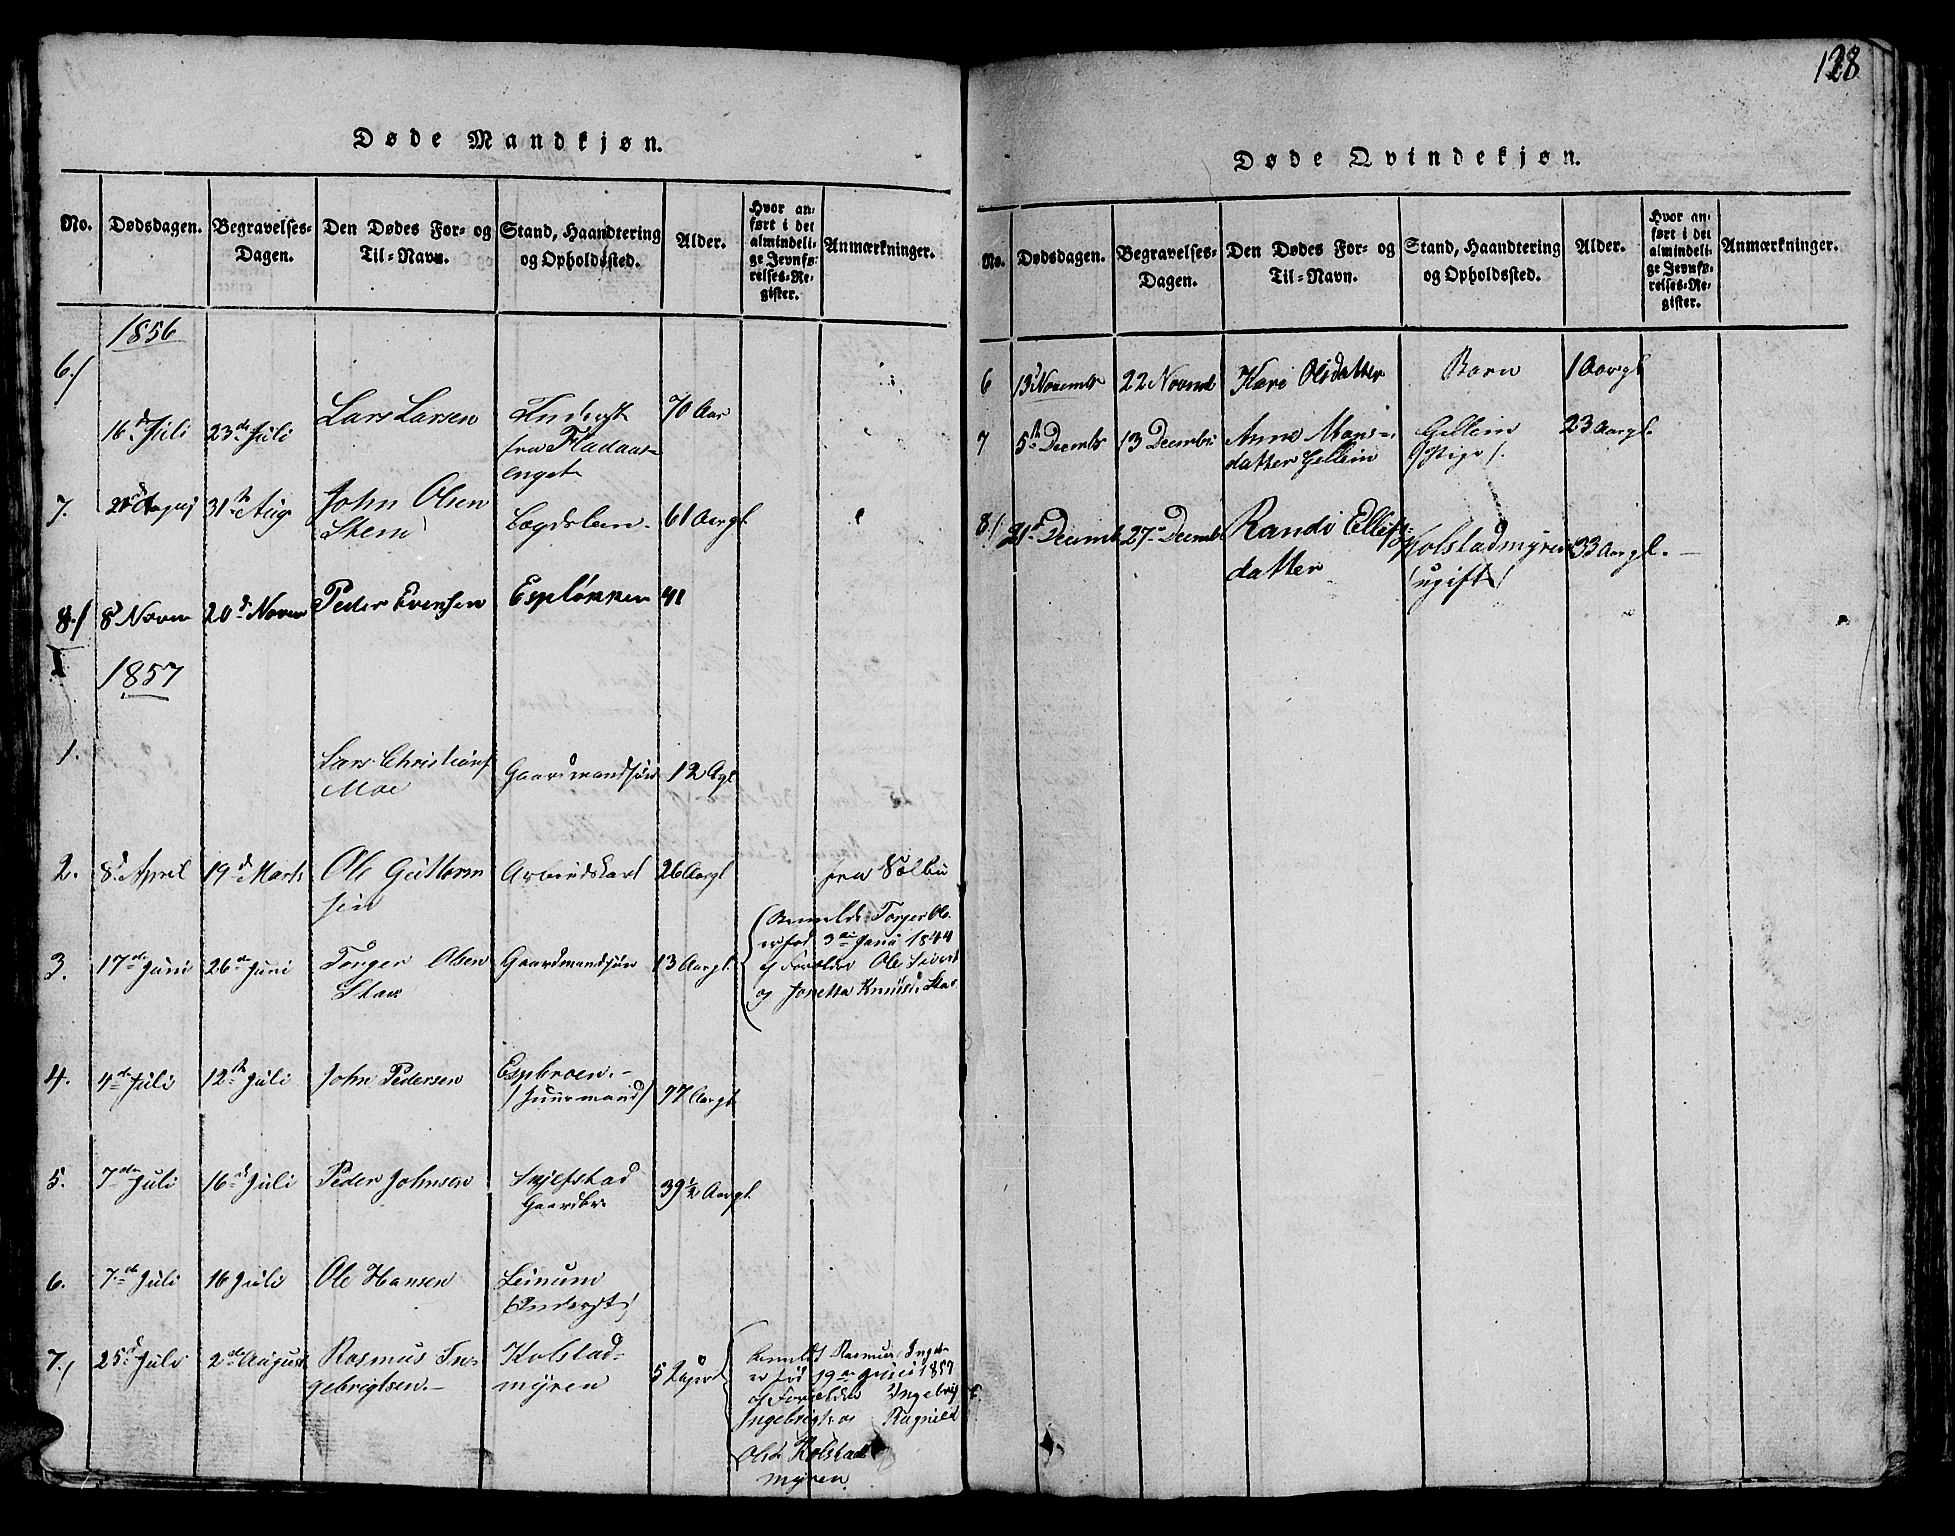 128
Døde Mandkjøn.
No. Dødsdagen. Begravelses-Dagen. Den Dødes For- og Til-Navn. Stand, Haandtering og Opholdssted. Alder. Hvor anført i det almindelige Jevnførelses-Register. Anmærkninger.
1856
6./ 16d Juli 23de Juli Lars Larsen Inderst 70 Aar
fra Fladaas-
enget
7. 31te Aug John Olsen Lægdslem 61 Aargl.
Stem
8./ 8d Novem 20d Novem Peder Evensen Espløkken 41
1857
1. Lars Christians Gaardmandssøn 12 Agl
Moe
2. 8d April 19d Marts Ole Guttorm Arbeidskarl 26 Aargl fra Volbu
sen
3. 17de Juni 26de Juni Torger Olsen Gaardmandssøn 13 Aargl.
Anmeldt Torger Ols.
er fød 3die Juni 1844
af Forældre Ole Sivert
og Joretta Knudsd.
4. 4de Juli 12te Juli John Pedersen Espbroen.-
/Huusmand/ 77 Aargl
5. 7de Juli 16d Juli Peder Johnsen Skjefstad 39½ Aargl.
Gaardbr.
6. 7de Juli 16 Juli Ole Hansen Leinum
/Inderst/
7./ 25d Juli 2de August Rasmus In- Kolstad- 5 Uger
gebrigtsen.- myren
Anmeldt Rasmus Inge-
er fød 19de Juni 1857
af Forældre Ingebrigt
Ingebrigts. og Ragnild
Olsd. Kolstad
myren.
Døde Qvindekjøn.
No. Dødsdagen. Begravelses-Dagen. Den Dødes For- og Til-Navn. Stand, Haandtering og Opholdssted. Alder. Hvor anført i det almindelige Jevnførelses-Register. Anmærkninger.
6 13d Novembr 22 Novemb Kari Olsdatter Barn 1 Aargl
7 5te Decembr 13 Decembr Anne Mons- Gellein 23 Aargl.
datter Gellein /Pige/.
8./ 21d Decemb 27de Decemb Randi Ellefs- Kolstadmyren 33 Aargl.
datter /ugift/